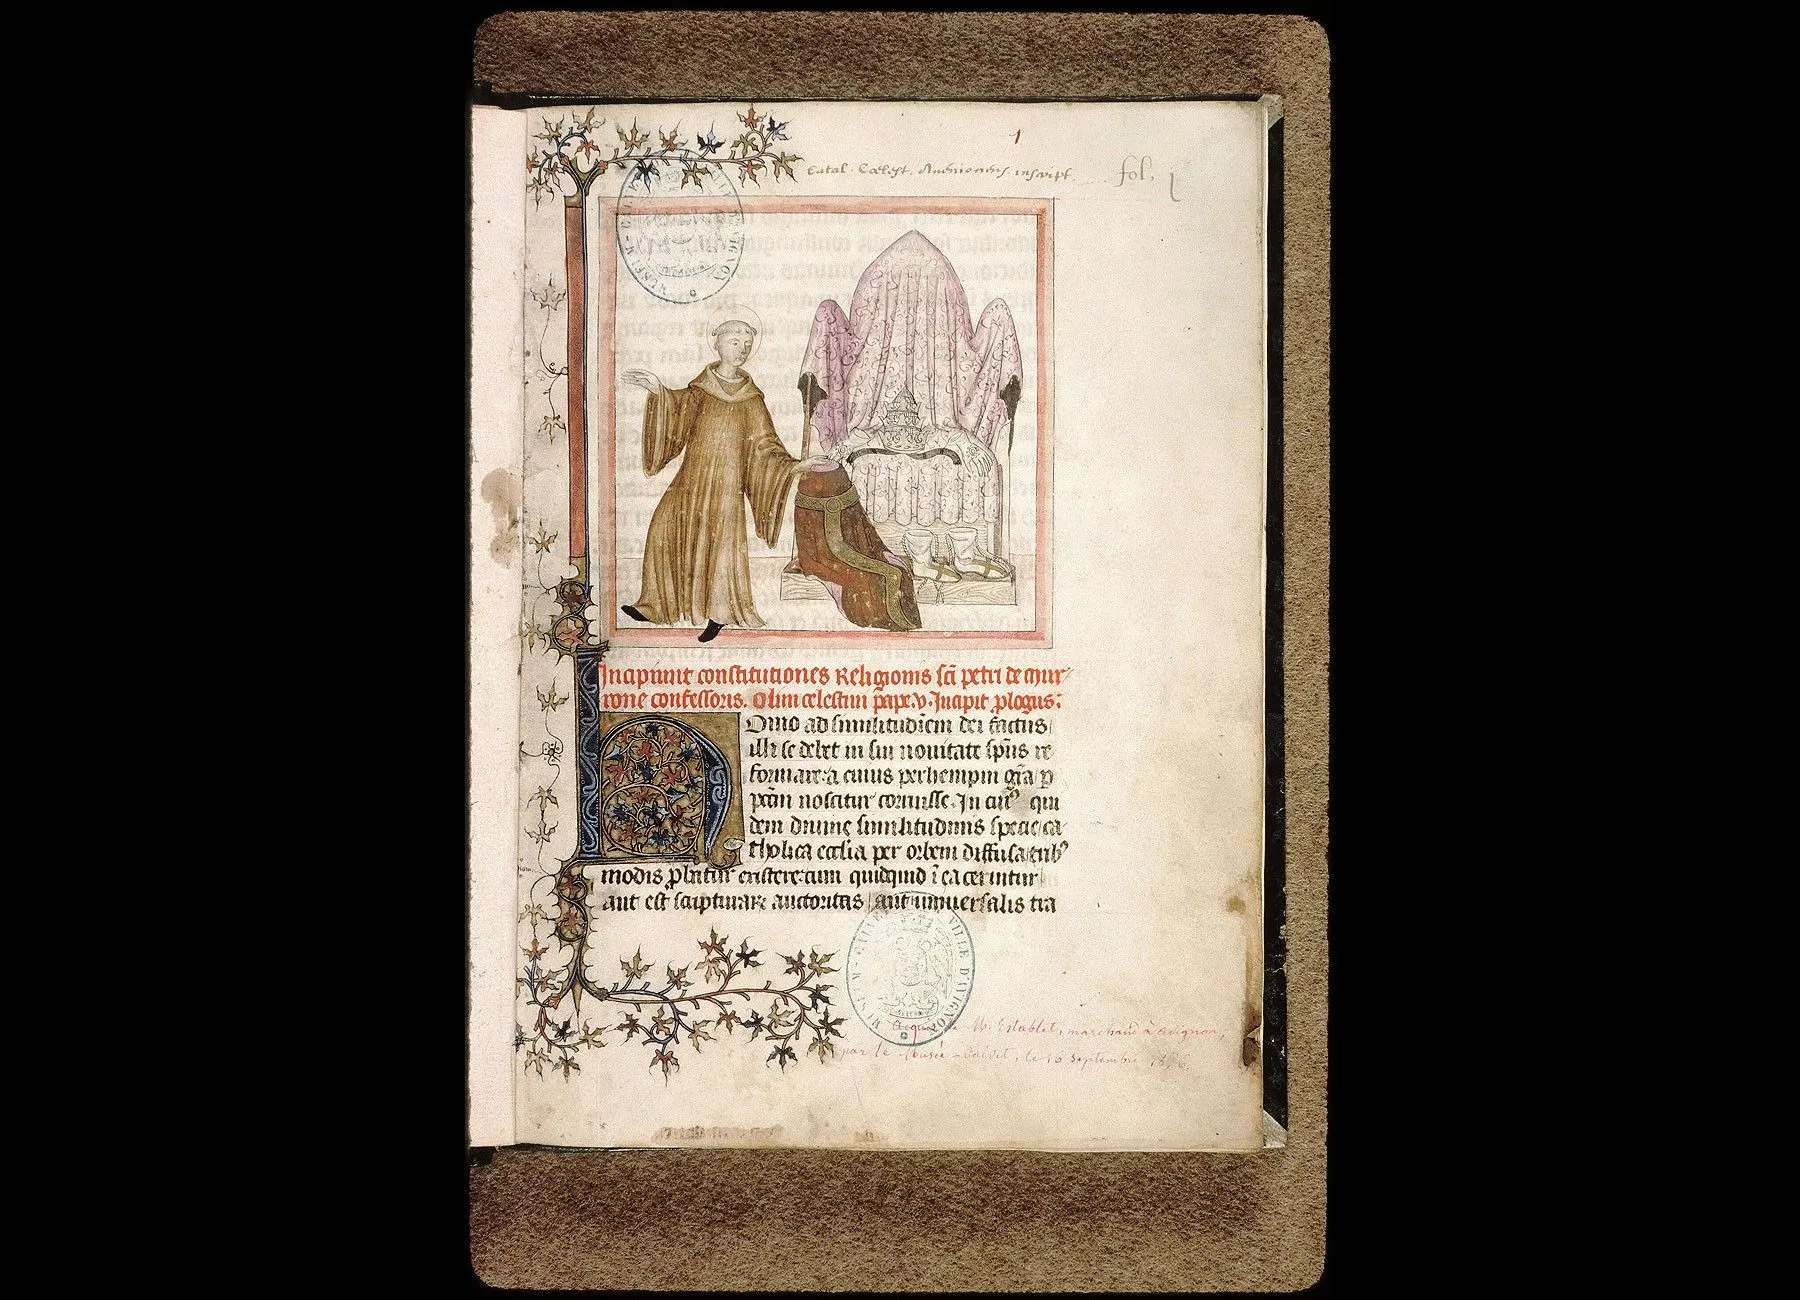 1
Catal. Cœlest. Avenionens. inscript. fol. j
Incipiunt constitutiones Religionis sci petri de mur-
rone confessoris. Olim celestini pape.v. Incipit plogus:
Omo ad similitudinem dei factus
illi se debet in sui novitate spus re
formare: a cuius per hempin gra p
petim noscitur corruisse. In cui9 qui
dem divine similitudinis specie ca
tholica ecclia per orbem diffusa trib9
modis existere: cum quidquid i ea cernitur
aut est scripturarum auctoritas aut universalis tra
MUSEUM - CALVET VILLE D'AVIGNON
Acquis de M. Establet, marchand à Avignon,
par le Musée-Calvet, le 10 septembre